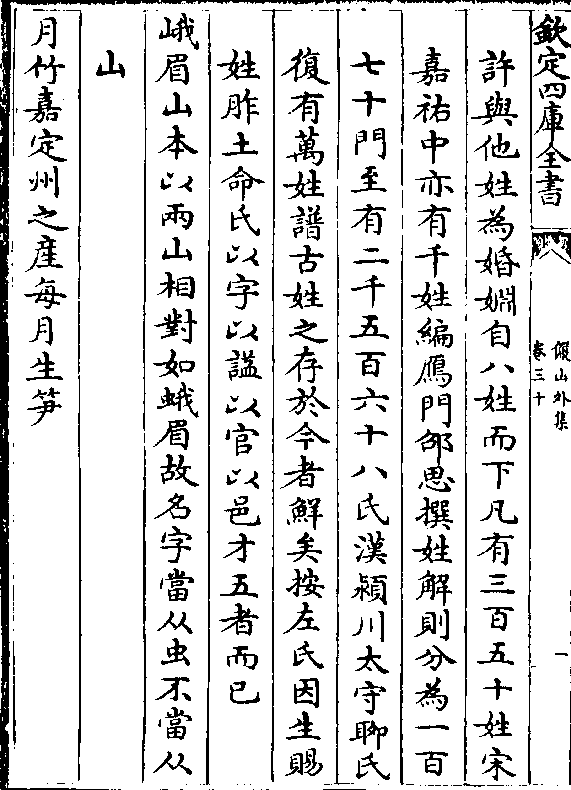 欽定四庫全書
儼山外集
卷三十
一
許與他姓為婚婣自八姓而下凡有三百五十姓宋
嘉祐中亦有千姓編鴈門邵思撰姓解則分為一百
七十門至有二千五百六十八氏漢潁川太守聊氏
復有萬姓譜古姓之存於今者鮮矣按左氏因生賜
姓胙土命氏以字以諡以官以邑才五者而已
峨眉山本以兩山相對如蛾眉故名字當从虫不當从
山
月竹嘉定州之産每月生笋